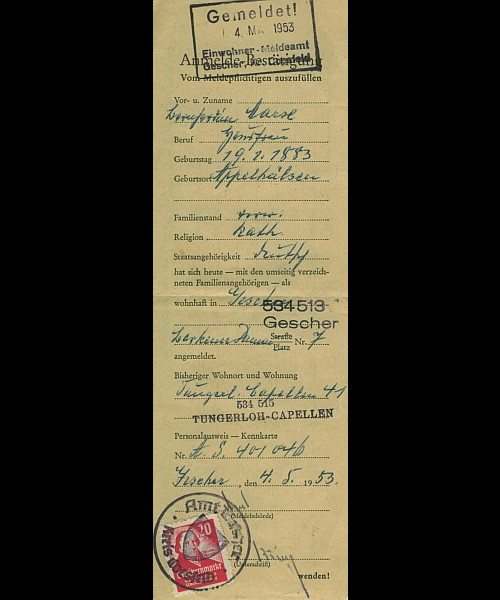 Gemeldet!
4. Mai 1953
Einwohner-Meldeamt
Gescher, Kr. Coesfeld
Anmelde-Bestätigung
Vom Meldepflichtigen auszufüllen
Vor- u. Zuname
Beruf Hausfrau
Geburtstag 19. 2. 1883
Geburtsort Appelhülsen
Familienstand verw.
Religion kath.
Staatsangehörigkeit deutsch
hat sich heute — mit den umseitig verzeich-
neten Familienangehörigen — als
wohnhaft in Gescher
534 513
Gescher
Straße
Platz Nr. 7
angemeldet.
Bisheriger Wohnort und Wohnung
Tungerl. Capellen 41
534 515
TUNGERLOH-CAPELLEN
Personalausweis — Kennkarte
Nr. A. S. 401046
Gescher, den 4. 5. 1953.
(Meldebehörde)
Amt
20
(Unterschrift)
wenden!